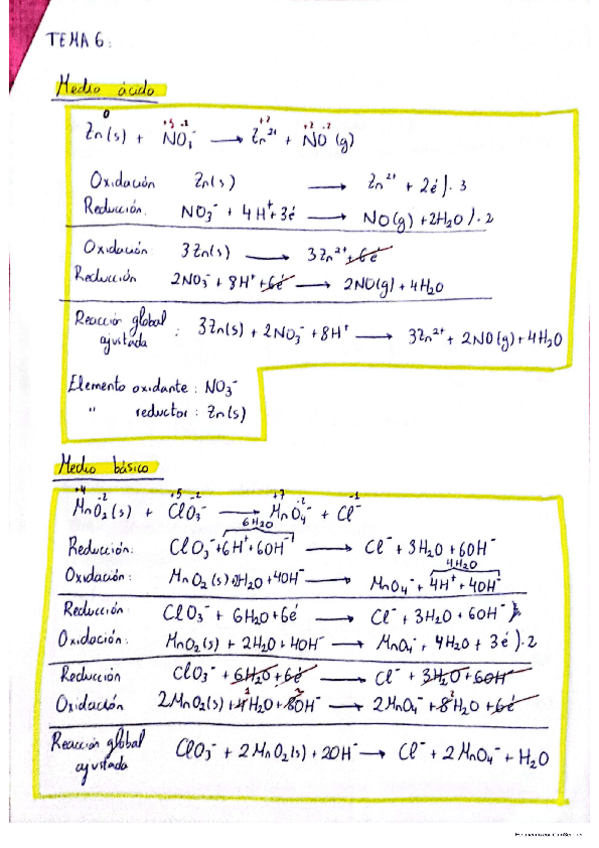 TEMA 6:
Medio ácido
0 +5 -2 +2 +2 -2
Zn(s) + NO₃⁻ ⟶ Zn²⁺ + NO (g)
Oxidación Zn(s) ⟶ Zn²⁺ + 2é ) · 3
Reducción. NO₃⁻ + 4H⁺ + 3é ⟶ NO(g) + 2H₂O ) · 2
Oxidación: 3Zn(s) ⟶ 3Zn²⁺ + 6é
Reducción 2NO₃⁻ + 8H⁺ + 6é ⟶ 2NO(g) + 4H₂O
Reacción global
ajustada : 3Zn(s) + 2NO₃⁻ + 8H⁺ ⟶ 3Zn²⁺ + 2NO(g) + 4H₂O
Elemento oxidante : NO₃⁻
" reductor : Zn(s)
Medio básico
+4 -2 +5 -2 +7 -2 -1
MnO₂(s) + ClO₃⁻ ⟶ MnO₄⁻ + Cl⁻
6H₂O
Reducción: ClO₃⁻ + 6H⁺ + 6OH⁻ ⟶ Cl⁻ + 3H₂O + 6OH⁻
4H₂O
Oxidación: MnO₂(s) + 2H₂O + 4OH⁻ ⟶ MnO₄⁻ + 4H⁺ + 4OH⁻
Reducción ClO₃⁻ + 6H₂O + 6é ⟶ Cl⁻ + 3H₂O + 6OH⁻
Oxidación: MnO₂(s) + 2H₂O + 4OH⁻ ⟶ MnO₄⁻ + 4H₂O + 3é ) · 2
Reducción ClO₃⁻ + 6H₂O + 6é ⟶ Cl⁻ + 3H₂O + 6OH⁻
Oxidación 2MnO₂(s) + 4H₂O + 8OH⁻ ⟶ 2MnO₄⁻ + 8H₂O + 6é
Reacción global
ajustada ClO₃⁻ + 2MnO₂(s) + 2OH⁻ ⟶ Cl⁻ + 2MnO₄⁻ + H₂O